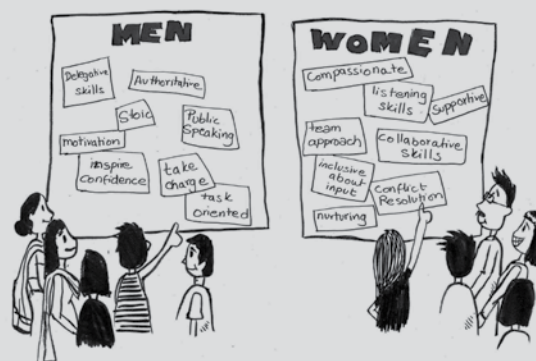 MEN
Delegative
Skills
Authoritative
Stoic
Public
Speaking
motivation
inspire
Confidence
take
charge
task
oriented
WOMEN
Compassionate
listening
skills
supportive
team
approach
Collaborative
Skills
inclusive
about
input
Conflict
Resolution
nurturing